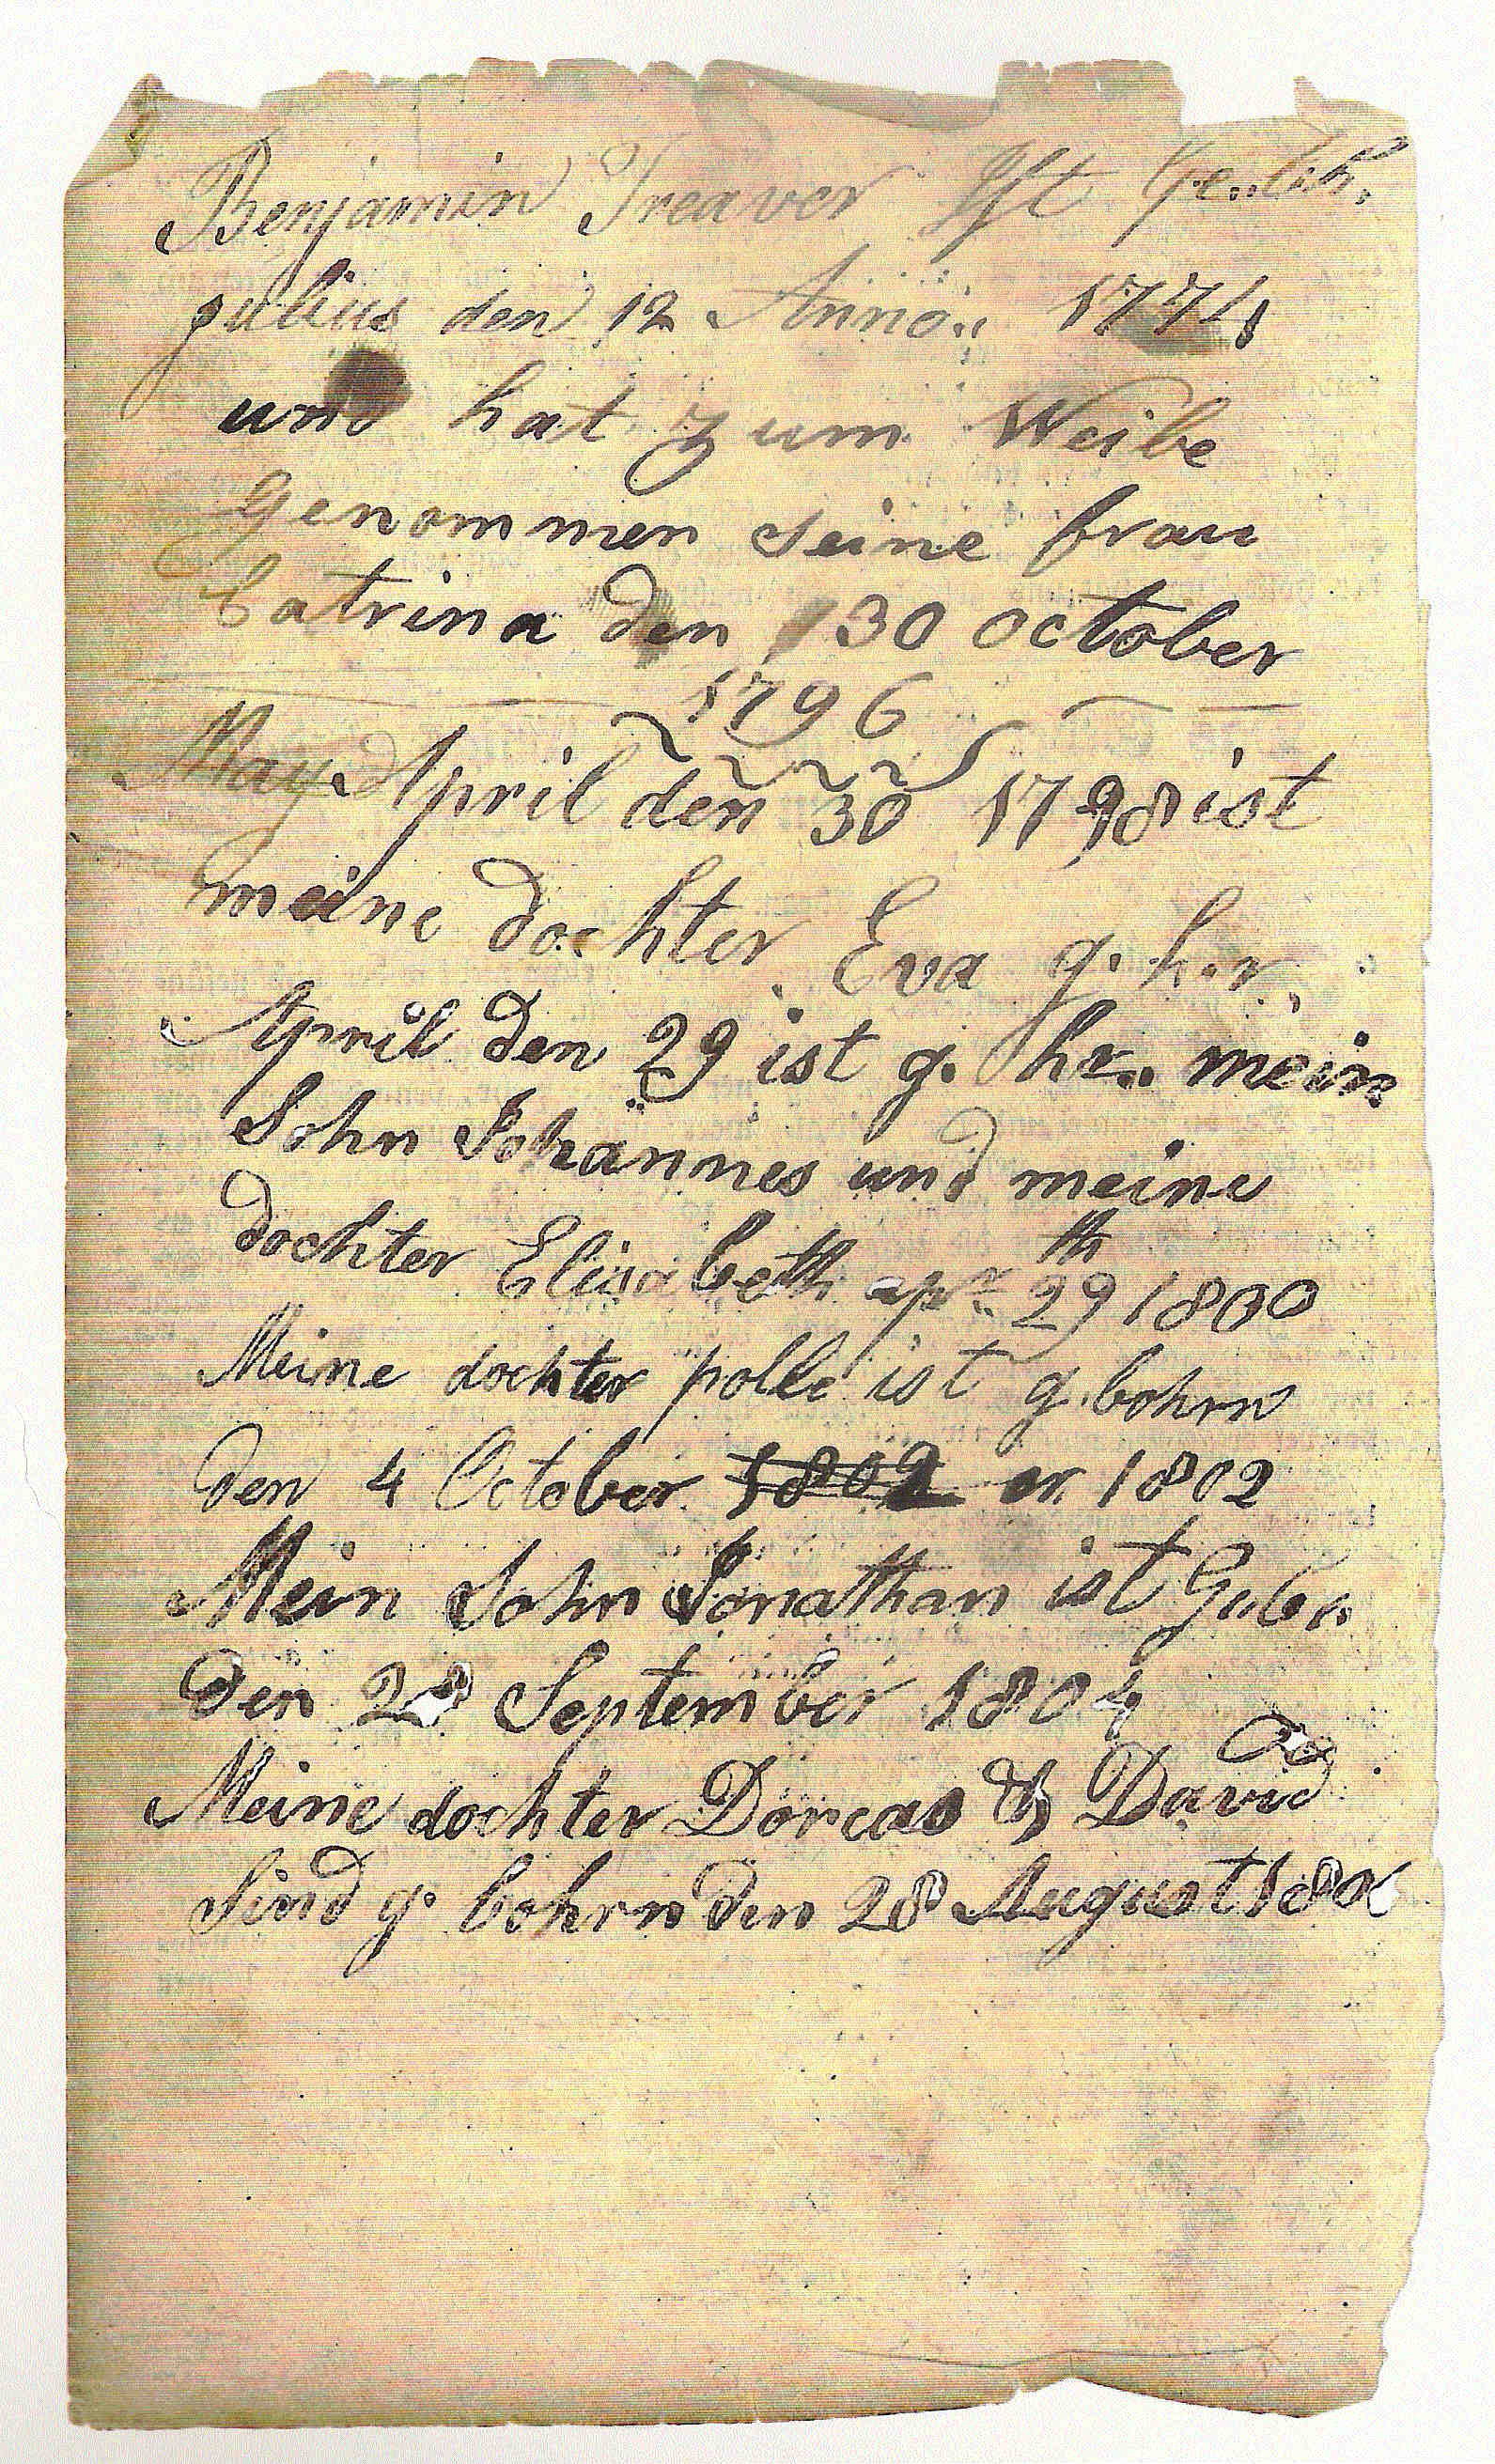 Benjamin Treaver Ist Ge..bh.
julius den 12 Anno.. 1774
und hat zum Weibe
Genommen seine frau
Catrina den 30 october
1796
May April den 30 1798 ist
meine dochter Eva g. h. r.
April den 29 ist g. hr.. mein
Sohn Johannes und meine
dochter Elisabeth apr 29th 1800
Meine dochter polle ist g. bohrn
den 4 October 1802 or 1802
Mein Sohn Jonathan ist Gebr.
den 28 September 1804
Meine dochter Dorcas & David
Sind g. bohrn den 28 August